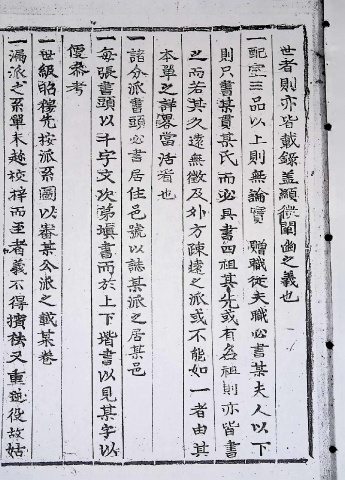 世者則亦皆載錄盖顯微闡幽之義也
一配室三品以上則無論實 贈職從夫職必書某夫人以下
則只書某貫某氏而必具書四祖其先或有名祖則亦皆書
之而若其久遠無徵及外方疎遠之派或不能如一者由其
本單之詳畧當活看也
一諸分派書頭必書居住邑號以誌某派之居某邑
一每張書頭以千字文次第塡書而於上下皆書以見某字以
便叅考
一世級昭穆先按派系圖以審某公派之載某卷
一漏派之系單未趂校梓而至者義不得擯秩又重設役故姑